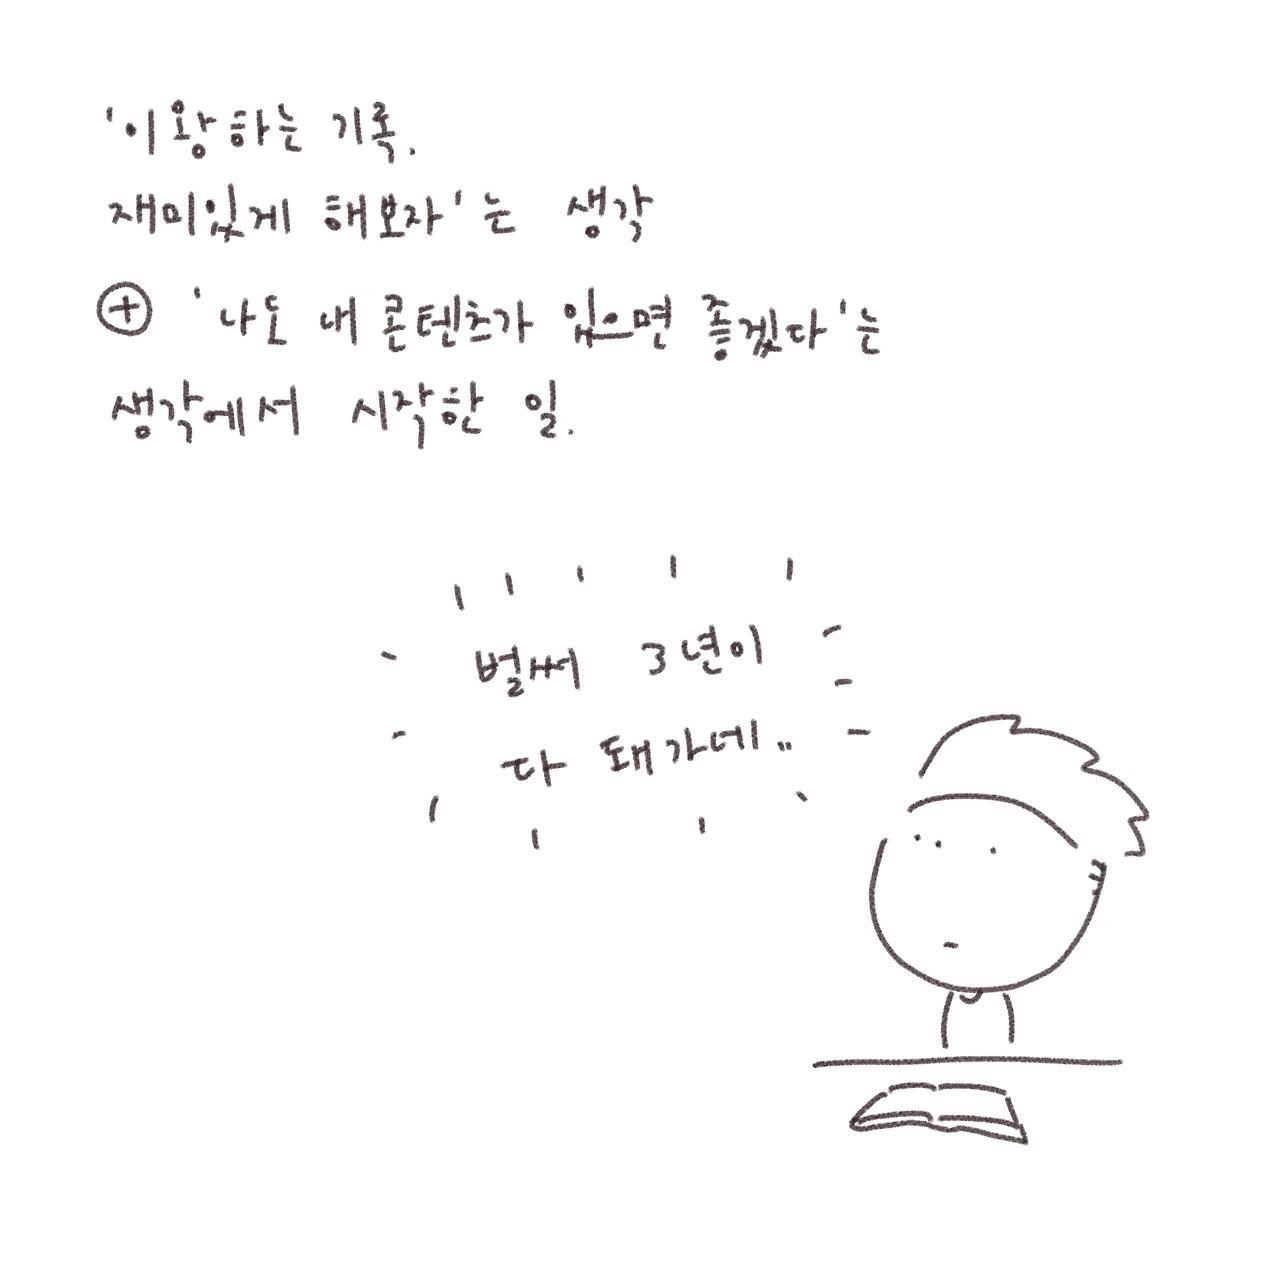 '이왕하는 기록.
재미있게 해보자'는 생각
⊕ '나도 내 콘텐츠가 있으면 좋겠다'는
생각에서 시작한 일.
벌써 3년이
다 돼가네..